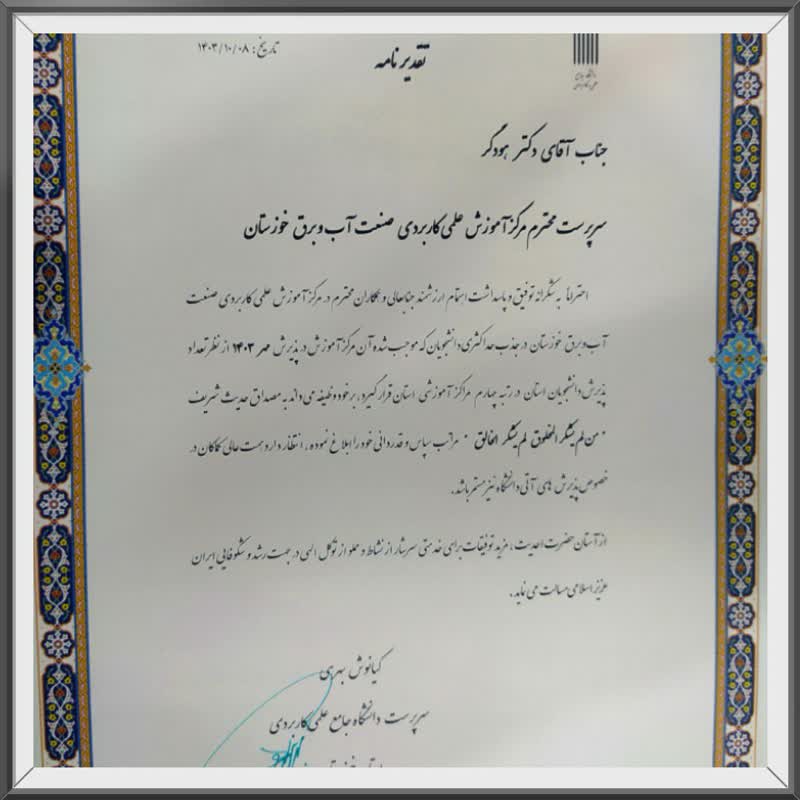 تاریخ: ۱۴۰۳/۱۰/۰۸
تقدیر نامه
جناب آقای دکتر هودگر
سرپرست محترم مرکز آموزش علمی کاربردی صنعت آب و برق خوزستان
احتراماً به شکرانه توفیق و پاسداشت اهتمام ارزشمند جنابعالی و همکاران محترم در مرکز آموزش علمی کاربردی صنعت
آب و برق خوزستان در جذب حداکثری دانشجویان که موجب شده آن مرکز آموزش در پذیرش مهر ۱۴۰۳ از نظر تعداد
پذیرش دانشجویان استان در رتبه چهارم مراکز آموزشی استان قرار گیرد، بر خود وظیفه می داند به مصداق حدیث شریف
" من لم یشکر المخلوق لم یشکر الخالق " مراتب سپاس و قدردانی خود را ابلاغ نموده، انتظار دارد همت عالی کماکان در
خصوص پذیرش های آتی دانشگاه نیز مستمر باشد.
از آستان حضرت احدیت، مزید توفیقات برای خدمتی سرشار از نشاط و مملو از توکل الهی در جهت رشد و شکوفایی ایران
عزیز اسلامی مسالت می نماید.
کیانوش
سرپرست دانشگاه جامع علمی کاربردی